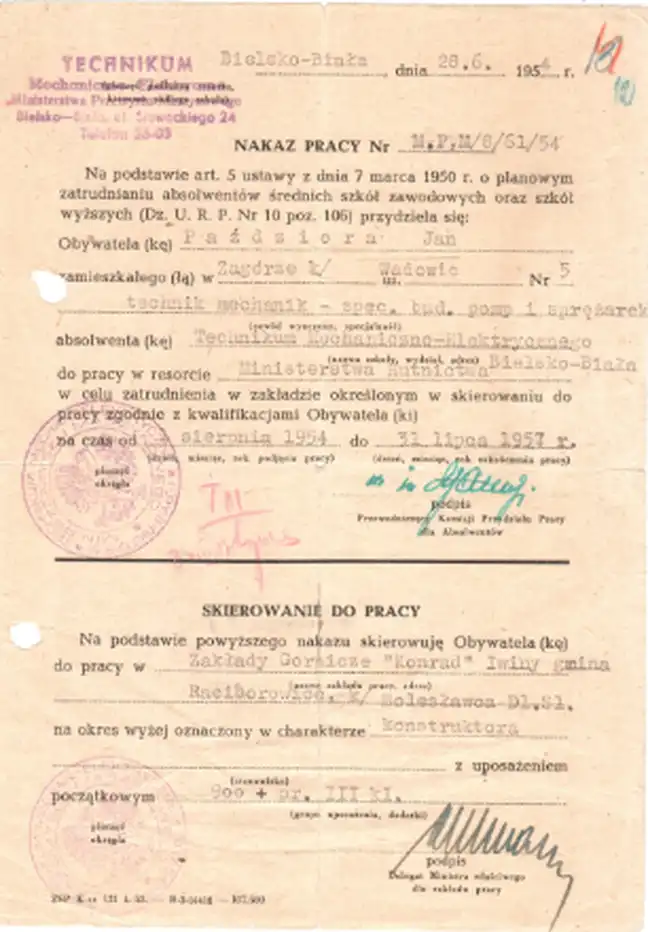 TECHNIKUM
Bielsko-Biała, dnia 28.6. 1954 r.
Mechaniczno-
Ministerstwa
Bielsko-Biała, ul. Słowackiego 24
Telefon 26-03
NAKAZ PRACY Nr M.P.M/8/61/54
Na podstawie art. 5 ustawy z dnia 7 marca 1950 r. o planowym
zatrudnianiu absolwentów średnich szkół zawodowych oraz szkół
wyższych (Dz. U. R. P. Nr 10 poz. 106) przydziela się:
Obywatela (kę) Paździora Jan
zamieszkałego (łą) w Zagórze k/ Wadowic Nr 5
ul.
technik mechanik - spec. bud. pomp i sprężarek
(zawód wyuczony, specjalność)
absolwenta (kę) Technikum Mechaniczno-Elektrycznego
(nazwa szkoły, wydział, adres) Bielsko-Biała
do pracy w resorcie Ministerstwa Hutnictwa
w celu zatrudnienia w zakładzie określonym w skierowaniu do
pracy zgodnie z kwalifikacjami Obywatela (ki)
na czas od sierpnia 1954 do 31 lipca 1957 r.
(dzień, miesiąc, rok podjęcia pracy) (dzień, miesiąc, rok zakończenia pracy)
pieczęć
okrągła
podpis
Przewodniczący Komisji Przydziału Pracy
dla Absolwentów
SKIEROWANIE DO PRACY
Na podstawie powyższego nakazu skierowuję Obywatela (kę)
do pracy w Zakłady Górnicze "Konrad" Iwiny gmina
(nazwa zakładu pracy, adres)
Raciborowice, k/ Bolesławca Dl.Śl.
na okres wyżej oznaczony w charakterze konstruktora
z uposażeniem
(stanowisko)
początkowym 900 + pr. III kl.
(grupa uposażenia, dodatki)
pieczęć
okrągła
podpis
Delegat Ministra właściwego
dla zakładu pracy